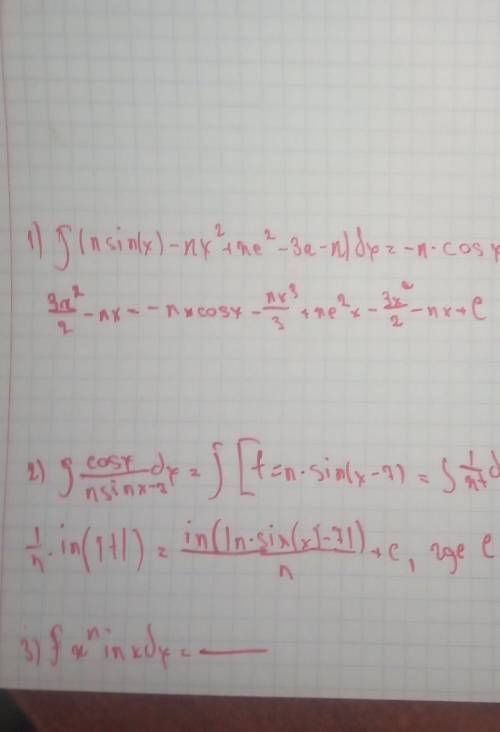 1) ∫(n sin(x) - nx² + ne² - 3a - n)dx = -n · cosx
3x²/2 - nx = - n x cosx - nx³/3 + ne²x - 3x²/2 - nx + C
2) ∫ cosx/(n sinx-7) dx = ∫ [t = n · sin(x - 7) = ∫ 1/nt d
1/n · in(|t|) = in(|n·sin(x)-7|)/n + C, где C
3) ∫ xⁿ in x dx = —